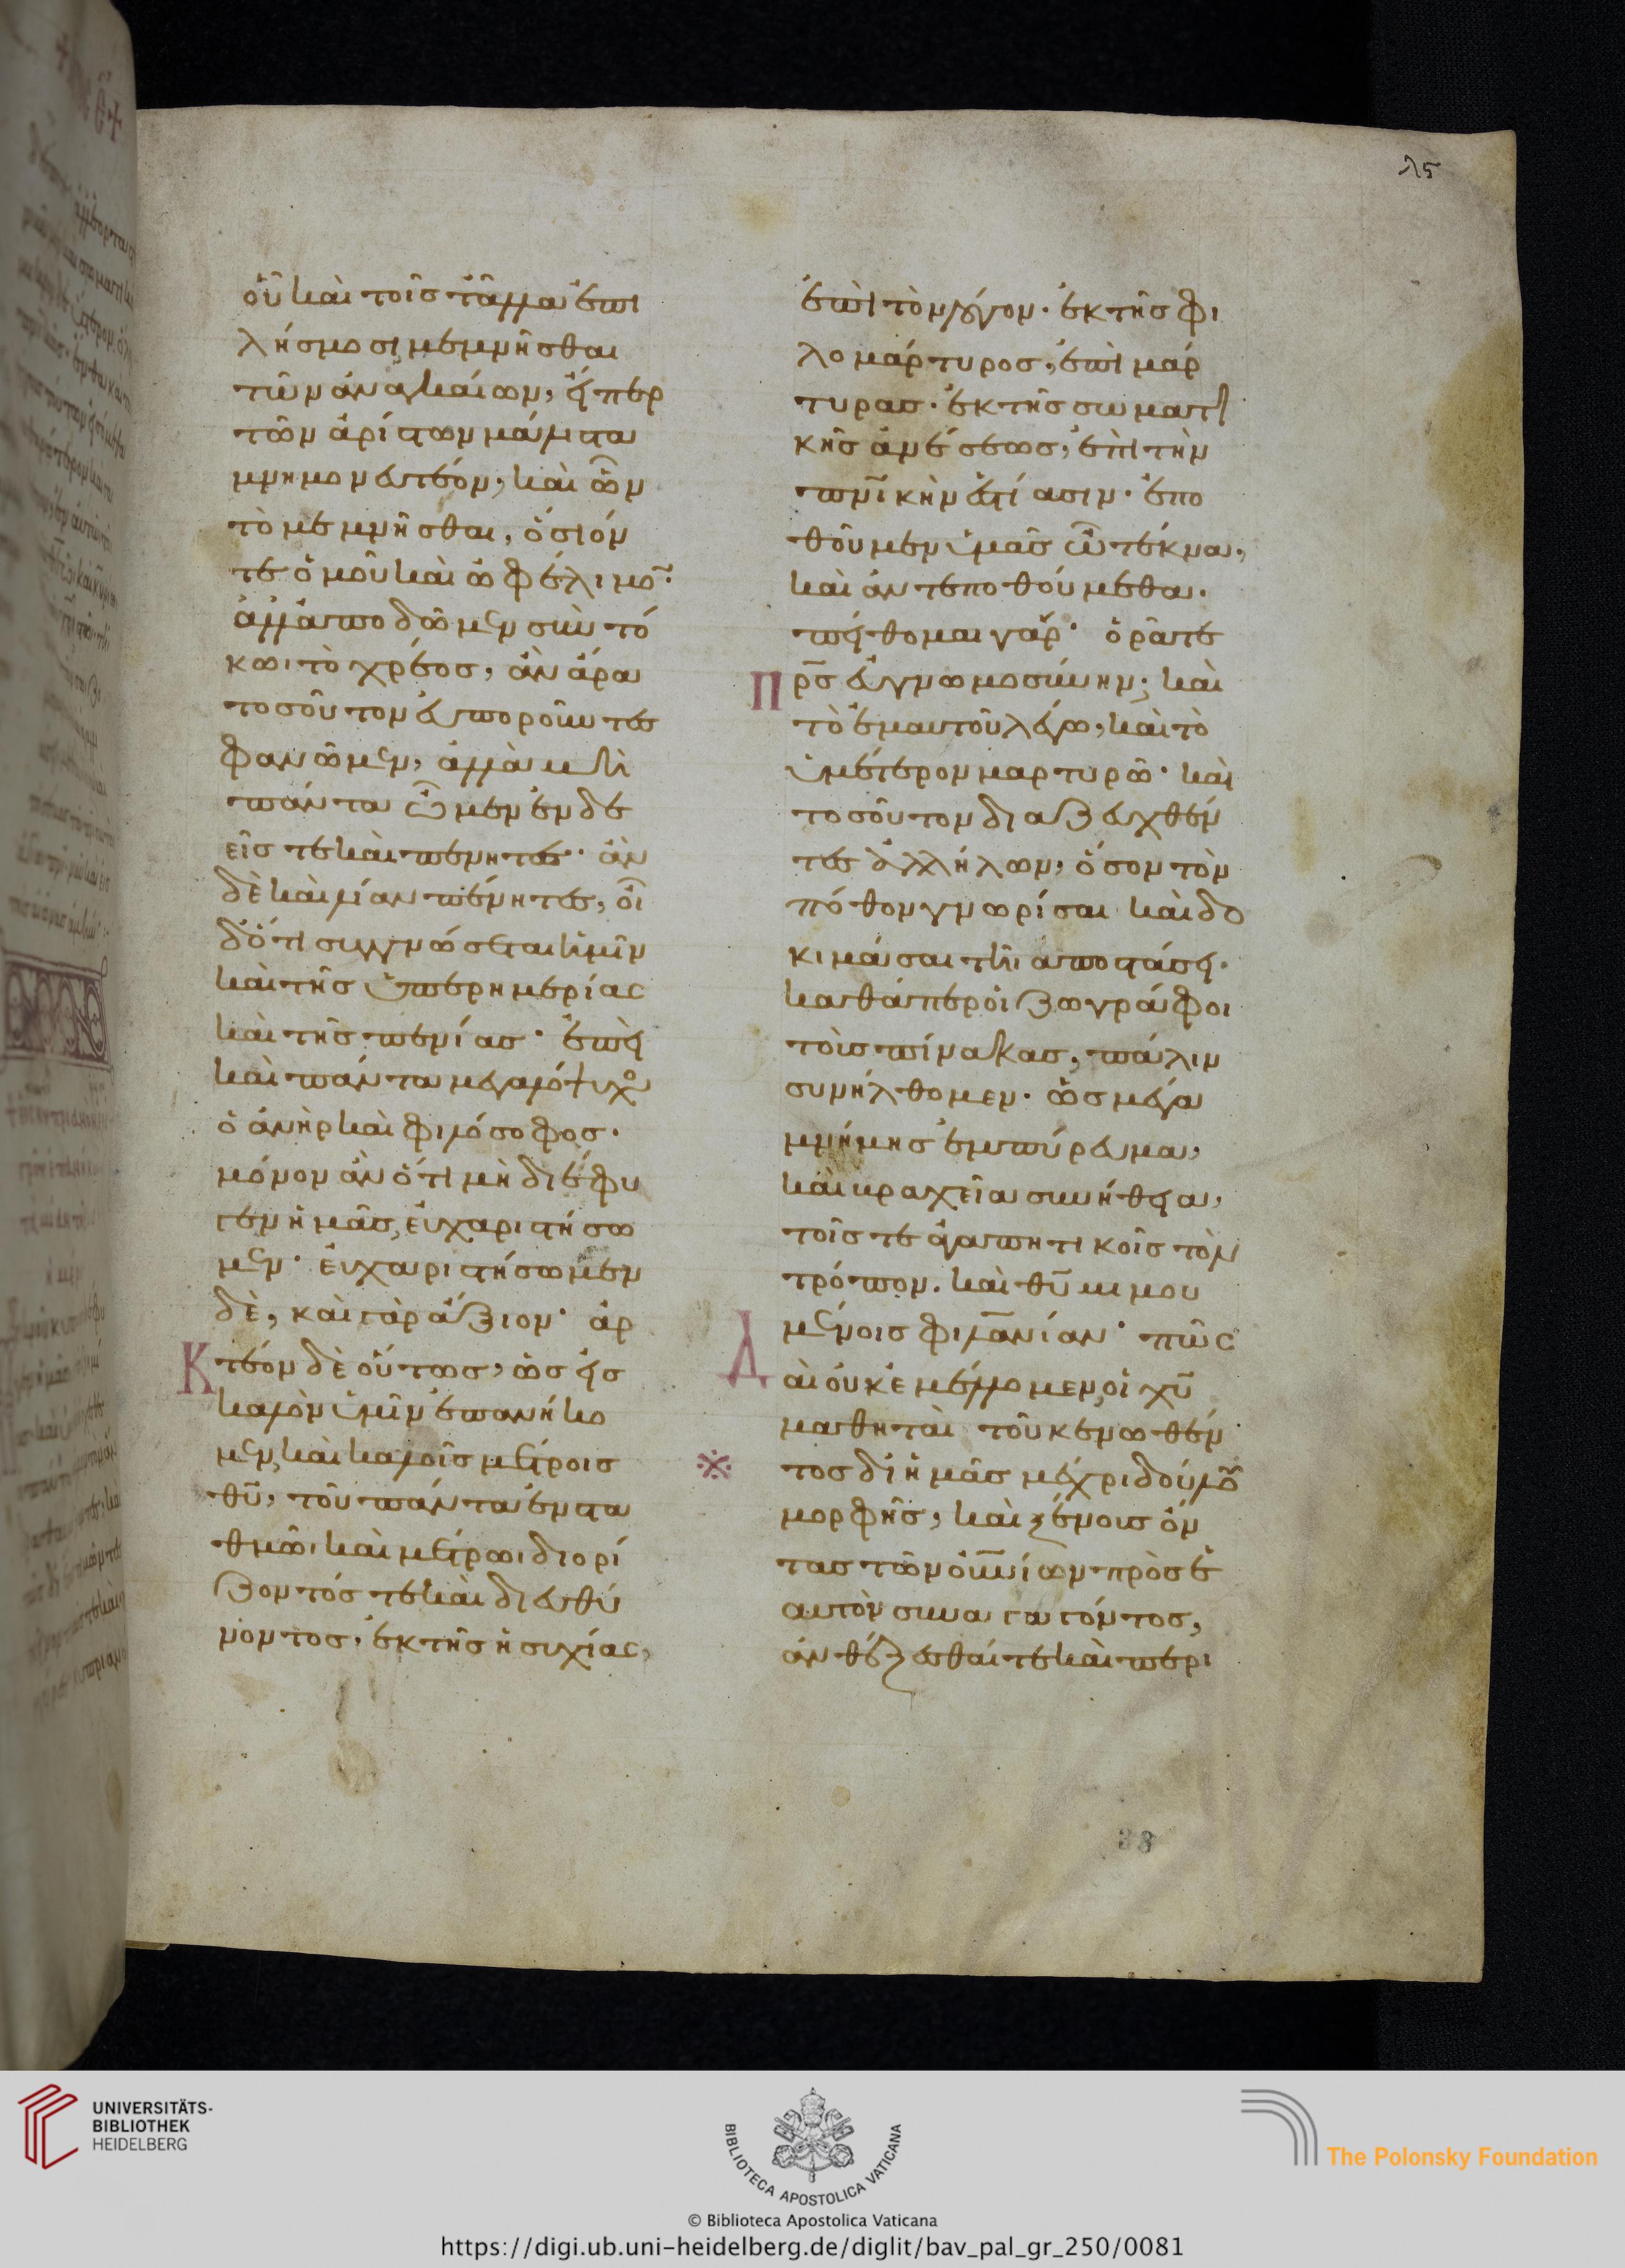 οὗ καὶ τοῖς τἄλλα ἐπι
λήσμοσι μεμνῆσθαι
τῶν ἀναγκαίων, εἴπερ
τῶν ἀρίστων μάλιστα
μνημονευτέον, καὶ ὧν
τὸ μεμνῆσθαι, ὅσιόν
τε ὁμοῦ καὶ ὠφέλιμο̄·
ἀλλἀποδῶμεν σὺν τό
κωι τὸ χρέος, ἂν ἄρα
τοσοῦτον εὐποροῦντες
φανῶμεν, ἀλλὰ μὴ
πάντα ὦμεν ἐνδε
εῖς τε καὶ πένητες· ἂν
δὲ καὶ λίαν πένητες, οἶ
δ' ὅτι συγγνώσεται ἡμῖν
καὶ τῆς ὑπερημερίας
καὶ τῆς πενίας· ἐπεὶ
καὶ πάντα μεγαλόψυχο
ὁ ἀνὴρ καὶ φιλόσοφος·
μόνον ἂν ὅτι μὴ διέφυ
γεν ἡμᾶς, εὐχαριστήσω
μεν· εὐχαριστήσωμεν
δὲ, καὶ γὰρ ἄξιον· ἀρ
Κτέον δὲ οὕτως, ὡς εἰς
καλὸν ὑμῖν ἐπανήκο
μεν, καὶ καλοῖς μέτροις
θῡ, τοῦ πάντα ἐν στα
θμῶι καὶ μέτρωι διορί
ζοντός τε καὶ διευθύ
νοντος, ἐκ τῆς ἡσυχίας,
ἐπὶ τὸν λόγον· ἐκ τῆς φι
λομάρτυρος, ἐπὶ μάρ
τυρας· ἐκ τῆς σωματι
κῆς ἀνέσεως, ἐπὶ τὴν
πν̄ικὴν ἑστίασιν· ἐπο
θοῦμεν ὑμᾶς ὦ τέκνα,
καὶ ἀντεποθούμεθα·
πείθομαι γάρ· ὁρᾶτε
Πρ̄ς εὐγνωμοσύνην· καὶ
τὸ ἐμαυτοῦ λέγω, καὶ τὸ
ὑμέτερον μαρτυρῶ· καὶ
τοσοῦτον διαζευχθέν
τες ἀλλήλων, ὅσον τὸν
πόθον γνωρίσαι καὶ δο
κιμάσαι τῆι ἀποστάσει·
καθάπερ οἱ ζωγράφοι
τοὺς πίνακας, πάλιν
συνήλθομεν· ὡς μέγα
μνήμης ἐμπύρευμα,
καὶ βραχεῖα συνήθεια,
τοῖς τε ἀγαπητικοῖς τὸν
τρόπον· καὶ θῡ μιμου
μένοις φιλᾱνίαν· πῶς
Δαὶ οὐκ ἐμέλλομεν, οἱ χῡ
μαθηταὶ τοῦ κενωθέν
τος δι' ἡμᾶς μέχρι δούλου
μορφῆς, καὶ ξένοις ὄν
τας τῶν οὐν̄ίων πρὸς ἑ
αυτὸν συναγαγόντος,
ἀνθέξεσθαί τε καὶ περι
38
UNIVERSITÄTS-
BIBLIOTHEK
HEIDELBERG
BIBLIOTECA APOSTOLICA VATICANA
The Polonsky Foundation
© Biblioteca Apostolica Vaticana
https://digi.ub.uni-heidelberg.de/diglit/bav_pal_gr_250/0081